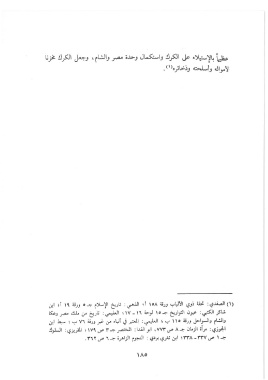 عظيماً بالإستيلاء على الكرك واستكمال وحدة مصر والشام، وجعل الكرك مخزنا
لأمواله وأسلحته وذخائره(١).
(١) الصفدي: تحفة ذوي الألباب ورقة ١٥٨ أ؛ الذهبي: تاريخ الإسلام جـ ٥ ورقة ١٩ أ؛ ابن
شاكر الكتبي: عيون التواريخ جـ ١٥ لوحة ١٦ - ١٧؛ العليمي: تاريخ من ملك مصر وعكا
والشام والسواحل ورقة ١١٥ ب؛ العليمي: المعتبر في أنباء من غبر ورقة ٧٦ ب؛ سبط ابن
الجوزي: مرآة الزمان جـ ٨ ص ٧٧٣؛ ابو الفدا: المختصر جـ ٣ ص ١٧٩؛ المقريزي: السلوك
جـ ١ ص ٣٣٧-٣٣٨؛ ابن تغري بردي: النجوم الزاهرة جـ ٦ ص ٣٦٢.
١٨٥